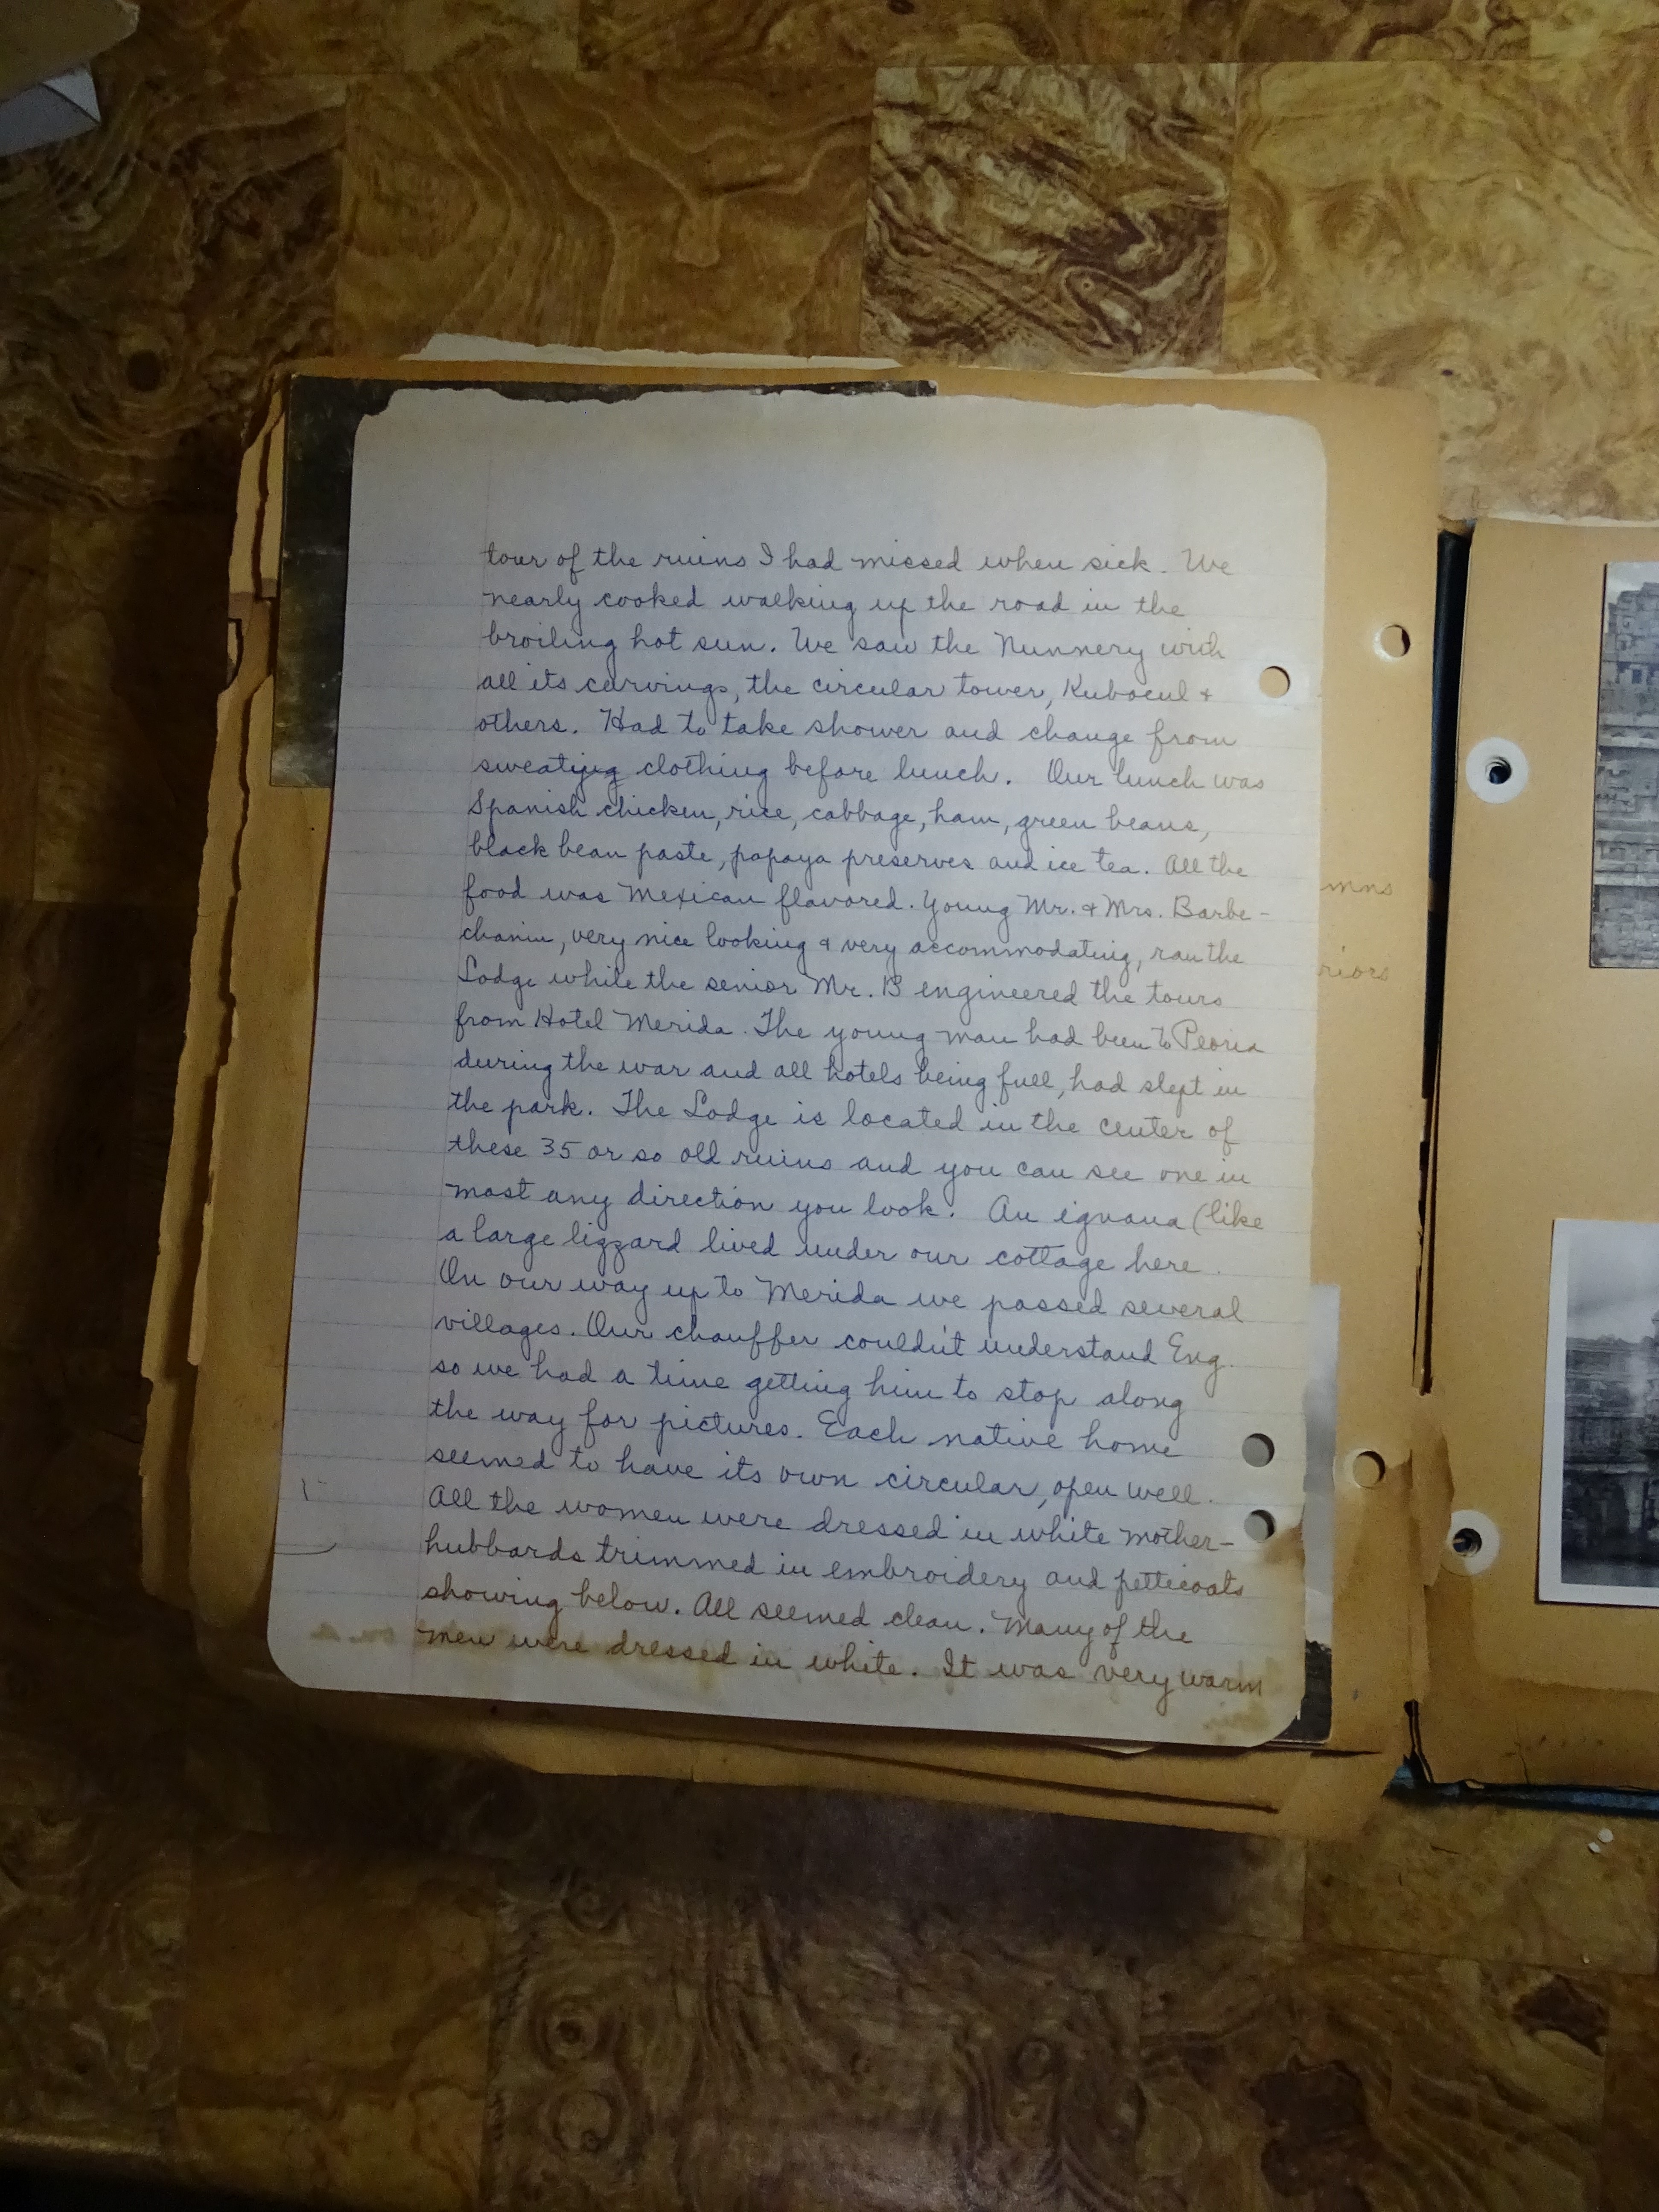 tour of the ruins I had missed when sick. We
nearly cooked walking up the road in the
broiling hot sun. We saw the Nunnery with
all its carvings, the circular tower, Kubocul +
others. Had to take shower and change from
sweatying clothing before lunch. Our lunch was
Spanish chicken, rice, cabbage, ham, green beans,
black bean paste, papaya preserves and ice tea. All the
food was Mexican flavored. Young Mr. + Mrs. Barbe-
chanin, very nice looking & very accommodating, ran the
Lodge while the senior Mr. B engineered the tours
from Hotel Merida. The young man had been to Peoria
during the war and all hotels being full, had slept in
the park. The Lodge is located in the center of
these 35 or so old ruins and you can see one in
most any direction you look. An iguana (like
a large lizzard lived under our cottage here.
On our way up to Merida we passed several
villages. Our chauffer couldn't understand Eng.
so we had a time getting him to stop along
the way for pictures. Each native home
seemed to have its own circular, open well.
All the women were dressed in white mother-
hubbards trimmed in embroidery and petticoats
showing below. All seemed clean. Many of the
men were dressed in white. It was very warm
mns
riors